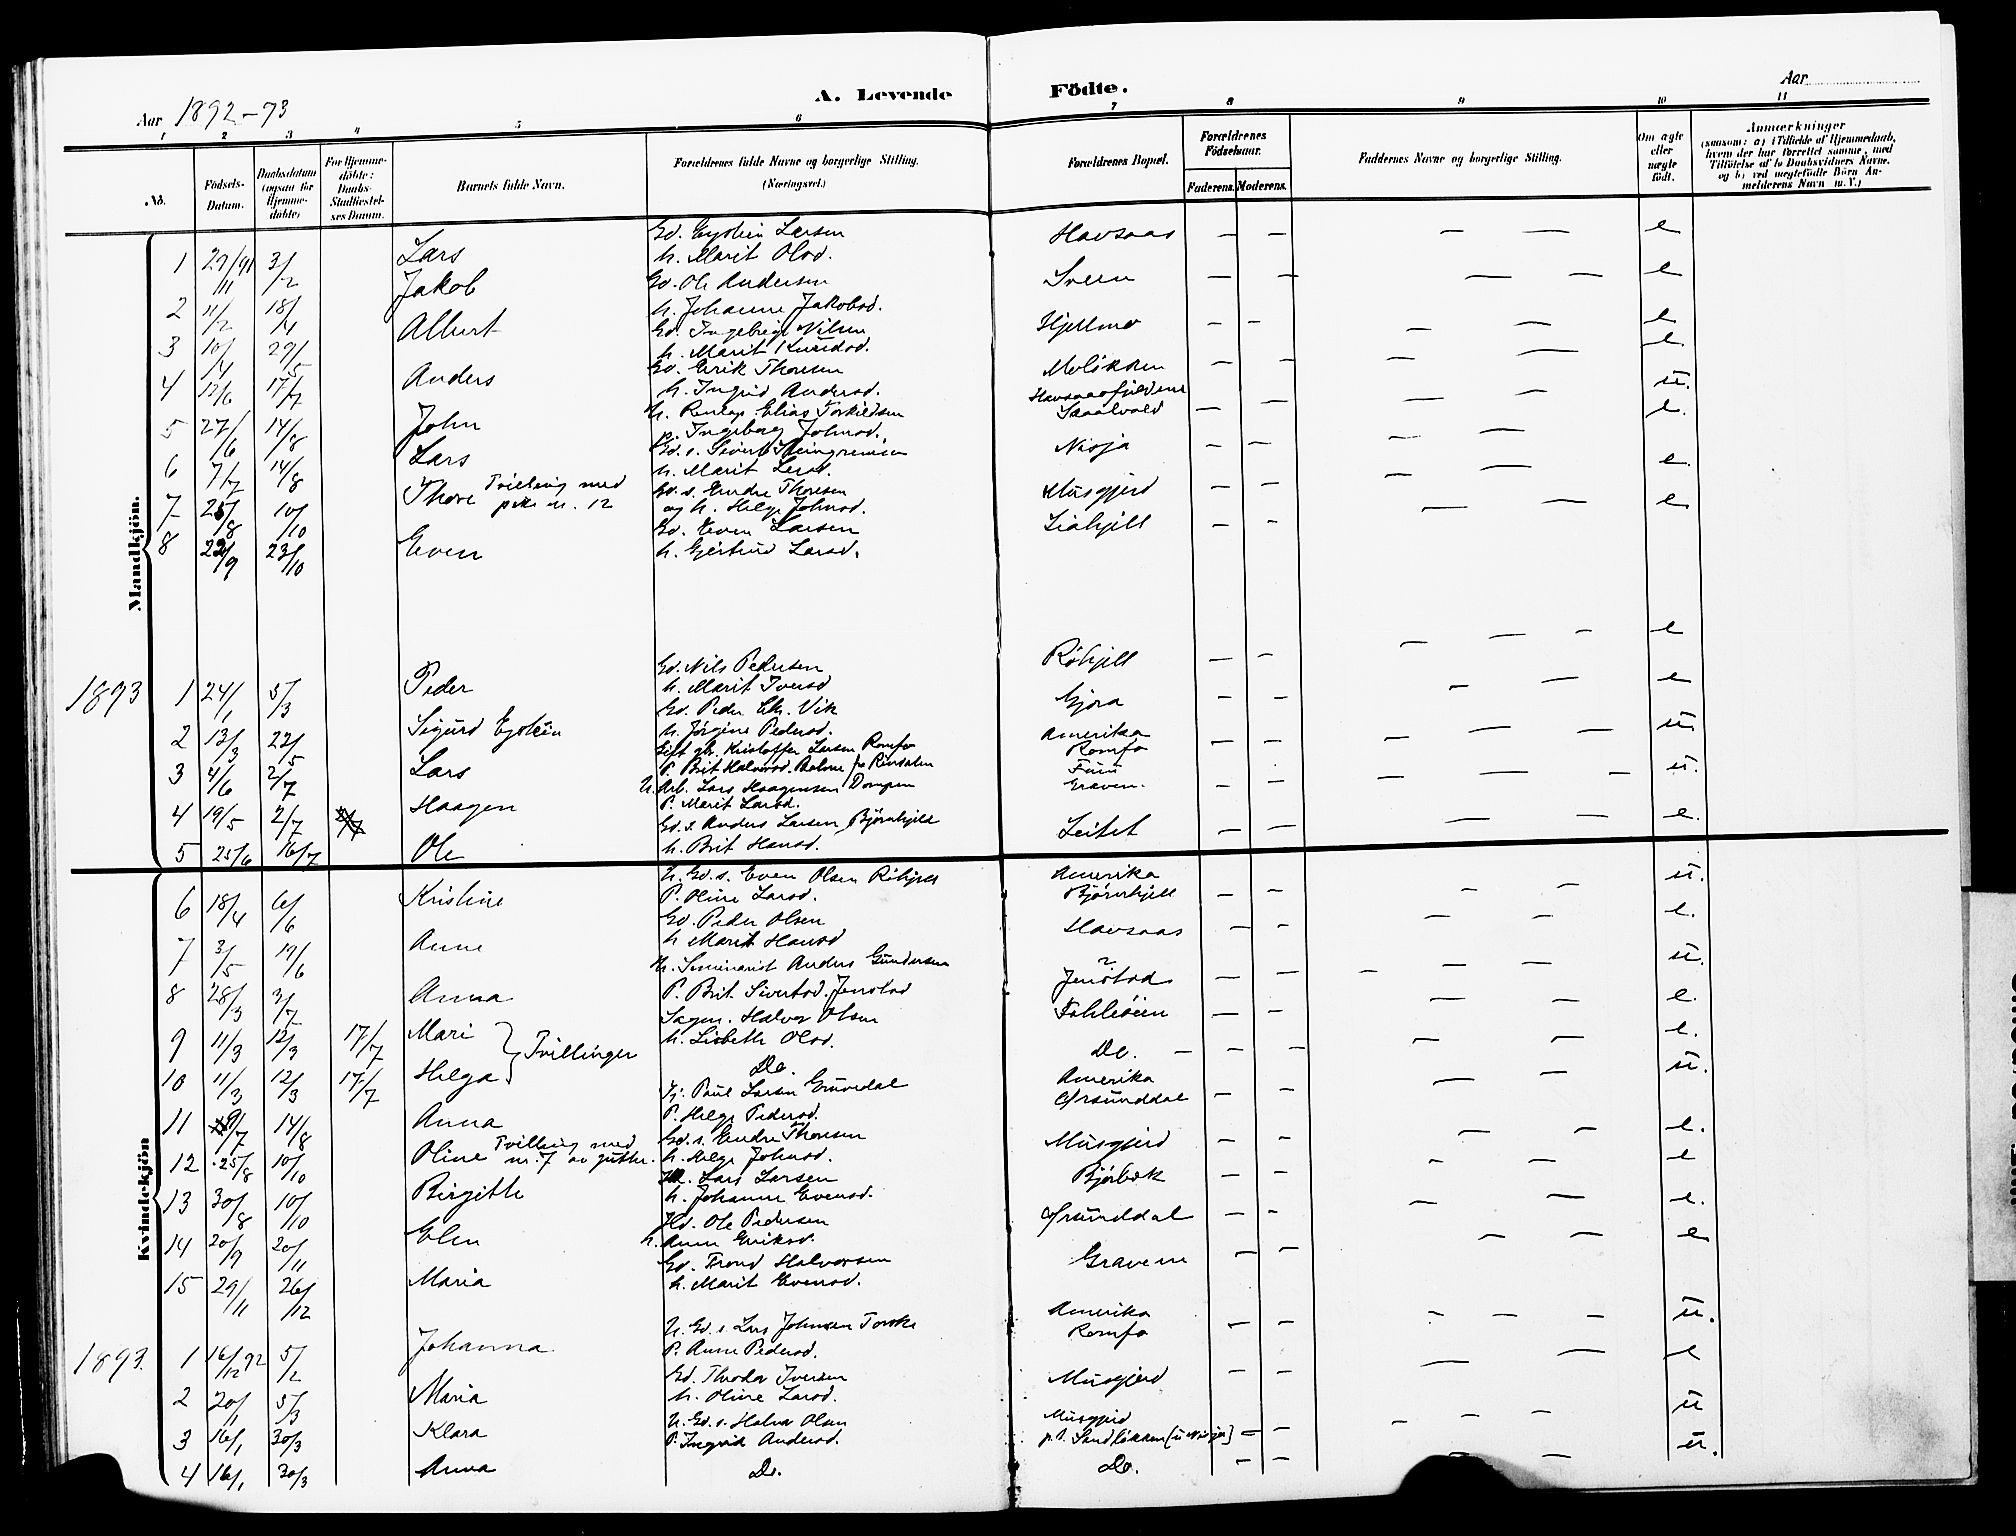 Aar 1892-93
A. Levende Födte.
Aar
1 2 3 4 5 6 7 8 9 10 11
No.
Födsels-Datum.
Daabsdatum (ogsaa for Hjemme-döbte)
For Hjemme-döbte: Daabs-Stadfæstelses Datum.
Barnets fulde Navn.
Forældrenes fulde Navne og borgerlige Stilling. (Næringsvei.)
Forældrenes Bopæl.
Forældrenes Födselsaar.
Faderens. Moderens.
Faddernes Navne og borgerlige Stilling.
Om ægte eller uægte födt.
Anmærkninger (saasom: a) i Tilfælde af Hjemmedaab, hvem der har forrettet samme, med Tilföielse af to Daabsvidners Navne. og b) ved uægtefödte Börn Anmelderens Navn m. V.)
Mandkjön.
Gd. Eystein Larsen Havsaas — — — — e
1 29/11 91 3/2 Lars h. Marit Olsd.
Gd. Ole Andersen Sveen — — — — e
2 11/2 18/4 Jakob h. Johanne Jakobsd.
Gd. Ingebrigt Nilsen Hjellmo — — — — e
3 10/4 29/5 Albert h. Marit Knudsd.
Gd. Erik Thoresen Moløkken — — — — e
4 12/6 17/7 Anders h. Ingrid Andersd.
Elias Torkildsen Skaalvold — — — — u.
5 27/6 14/8 John p. Ingeborg Johnsd.
Gd. s. Sivert Steingrimsen Nisja — — — — e.
6 7/7 14/8 Lars h. Marit Larsd.
Gd. s. Endre Thoresen Musgjerd — — — — e.
7 25/8 10/10 Thore Tvilling med pike nr. 12 og h. Helge Johnsd.
Gd. Even Larsen Liahjell — — — — e
8 22/9 23/10 Even h. Gjertrud Larsd.
1893
Gd. Nils Pedersen Röhjell — — — — — e
1 24/1 5/3 Peder h. Marit Iversd
Gd. Peder Chr. Vik Gjøra — — — — e
2 13/3 22/5 Sigurd Eystein h. Jörgine Pedersd.
Gift gbr. Kristoffer Larsen Romfo Amerika — — — — — u
3 4/6 2/7 Lars P. Brit Halvorsd. Bolme fra Rindalen Romfo
U. Arb. Lars Haagensen Dompen Funi — — — — — u.
4 19/5 2/7 Haagen P. Marit Larsd. Graven.
Gd. s. Anders Larsen Björnhjell Leitet — — — — e.
5 25/6 16/7 Ole h. Brit Hansd.
Kvindekjön
U. Gd. s. Even Olsen Röhjell Amerika — — — — u.
6 18/4 6/6 Kristine P. Oline Larsd. Björnhjell
Gd. Peder Olsen Havsaas — — — — e.
7 3/5 19/6 Anne h Marit Hansd
U. Seminarist Anders Gundersen ? — — — — — u.
8 28/3 2/7 Anna P. Brit Sivertsd. Jenstad Jenstad
Sagm. Halvor Olsen Fahlesöien — — — — e.
9 11/3 12/3 17/7 Mari } Tvillinger h. Lisbeth Olsd.
10 11/3 12/3 17/7 Helga Do. Do. — — — — — e.
Paul Larsen Grüvedal Amerika — — — — u.
11 9/7 14/8 Anna P. Helge Pedersd. Grsunddal
Gd. s. Endre Thoresen Musgjerd — — — — e.
12 25/8 10/10 Oline Tvilling med nr. 7 av gutter. h. Helge Johnsd.
Lars Larsen Bjørbæk — — — — e
13 30/8 10/10 Birgitte h. Johanne Evensd.
Hd. Ole Pedersen Grsunddal — — — — e.
14 20/9 20/11 Elen h. Anne Eriksd.
Gd. Trond Halvorsen Gravem — — — — e
15 29/11 26/12 Maria h. Marit Evensd.
1893.
U. Gd. s. Lars Johnsen Torske Amerika — — — — — u.
1 16/12 92 5/2 Johanna P. Anne Pedersd. Romfo
Gd. Thoder Iversen Musgjerd — — — — e
2 20/1 5/3 Maria h. Oline Larsd.
U. Gd. s. Halvor Olsen Musgjerd — — — — — u
3 16/1 30/3 Klara P. Ingrid Andersd. p. t. Sandløkken [u Nisja]
4 16/1 30/3 Anna Do. Do. — — — — u.